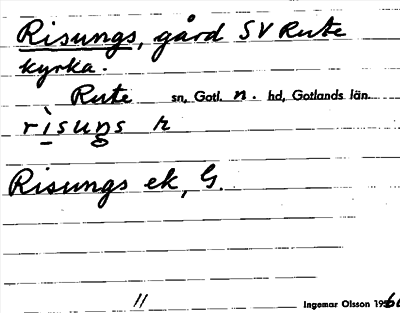 Risungs, gård SV Rute
kyrka.
Rute sn, Gotl. n. hd, Gotlands län.
rìsuns
Risungs ek, G.
Ingemar Olsson 19